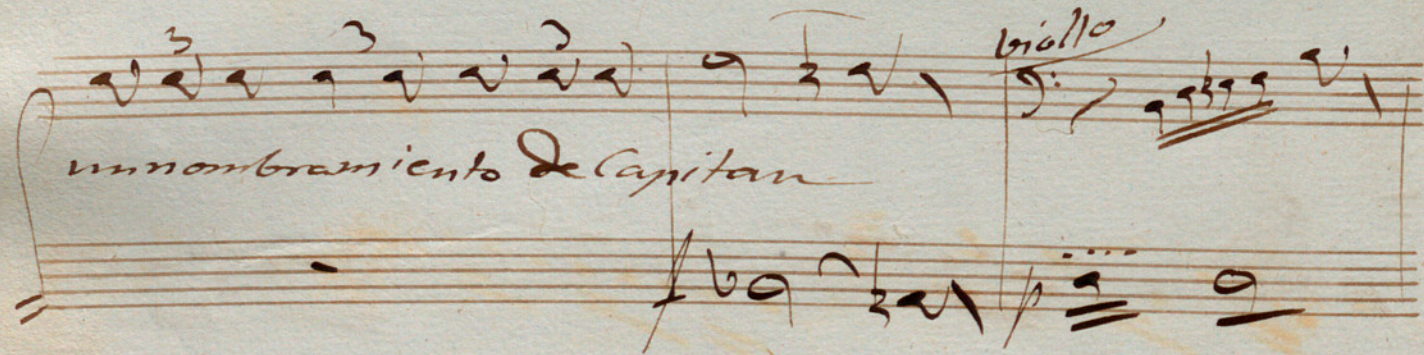 3 3 3
violló
un nombramiento de Capitan
f p